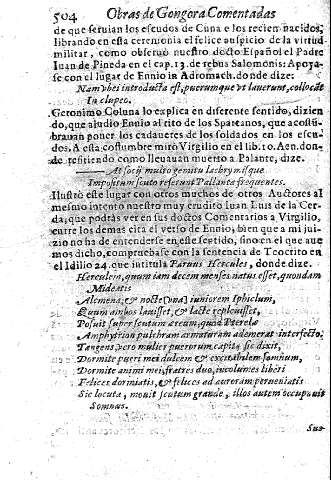 504 Obras de Gongora Comentadas
de que seruian los escudos de Cuna a los recien nacidos,
librando en esta ceremonia el felice auspicio de la virtud
militar, como obseruò nuestro docto Español el Padre
Iuan de Pineda en el cap. 13. de rebus Salomonis: Apoya-
se con el lugar de Ennio in Adromach. donde dize:
Nam vbi introducta est, puerumque vt lauerunt, collocāt
In clupeo.
Geronimo Coluna lo explica en diferente sentido, dizien
do, que aludio Ennio al rito de los Spartanos, que acostū-
brauan poner los cadaueres de los soldados en los escu-
dos. A esta costumbre mirò Virgilio en el lib. 10. Aen. don-
de refitiendo como lleuauan muerto a Palante, dize.
— At socij multo gemitu lachrymisque
Impositum scuto referunt Pallanta frequentes.
Ilustrò este lugar con otros muchos de otros Auctores al
mesmo intento nuestro muy erudito Iuan Luis de la Cer-
da, que podràs ver en sus doctos Comentarios a Virgilio,
entre los demas cita el verso de Ennio, bien que a mi jui-
zio no ha de entenderse en este sentido, sino en el que aue
mos dicho, compruebase con la sentencia de Teocrito en
el Idilio 24. que intitula Paruus Hercules, donde dize.
Herculem, quum iam decem menses natus esset, quondam
Mideatis
Alcmena, & nocte (una) iuniorem Iphiclum,
Quum ambos lauisset, & lacte repleuisset,
Posuit super scutum æreum, quod Pterelæ
Amphytrion pulchram armaturam ademerat interfecto.
Tangens, vero mulier puerorum capita sic dixit,
Dormite pueri mei dulcem & excitabilem somnum,
Dormite animi mei, fratres duo, incolumes liberi
Felices dormiatis, & felices ad auroram perueniatis
Sic locuta, mouit scutum grande, illos autem occupauit
Somnus.
Sus-